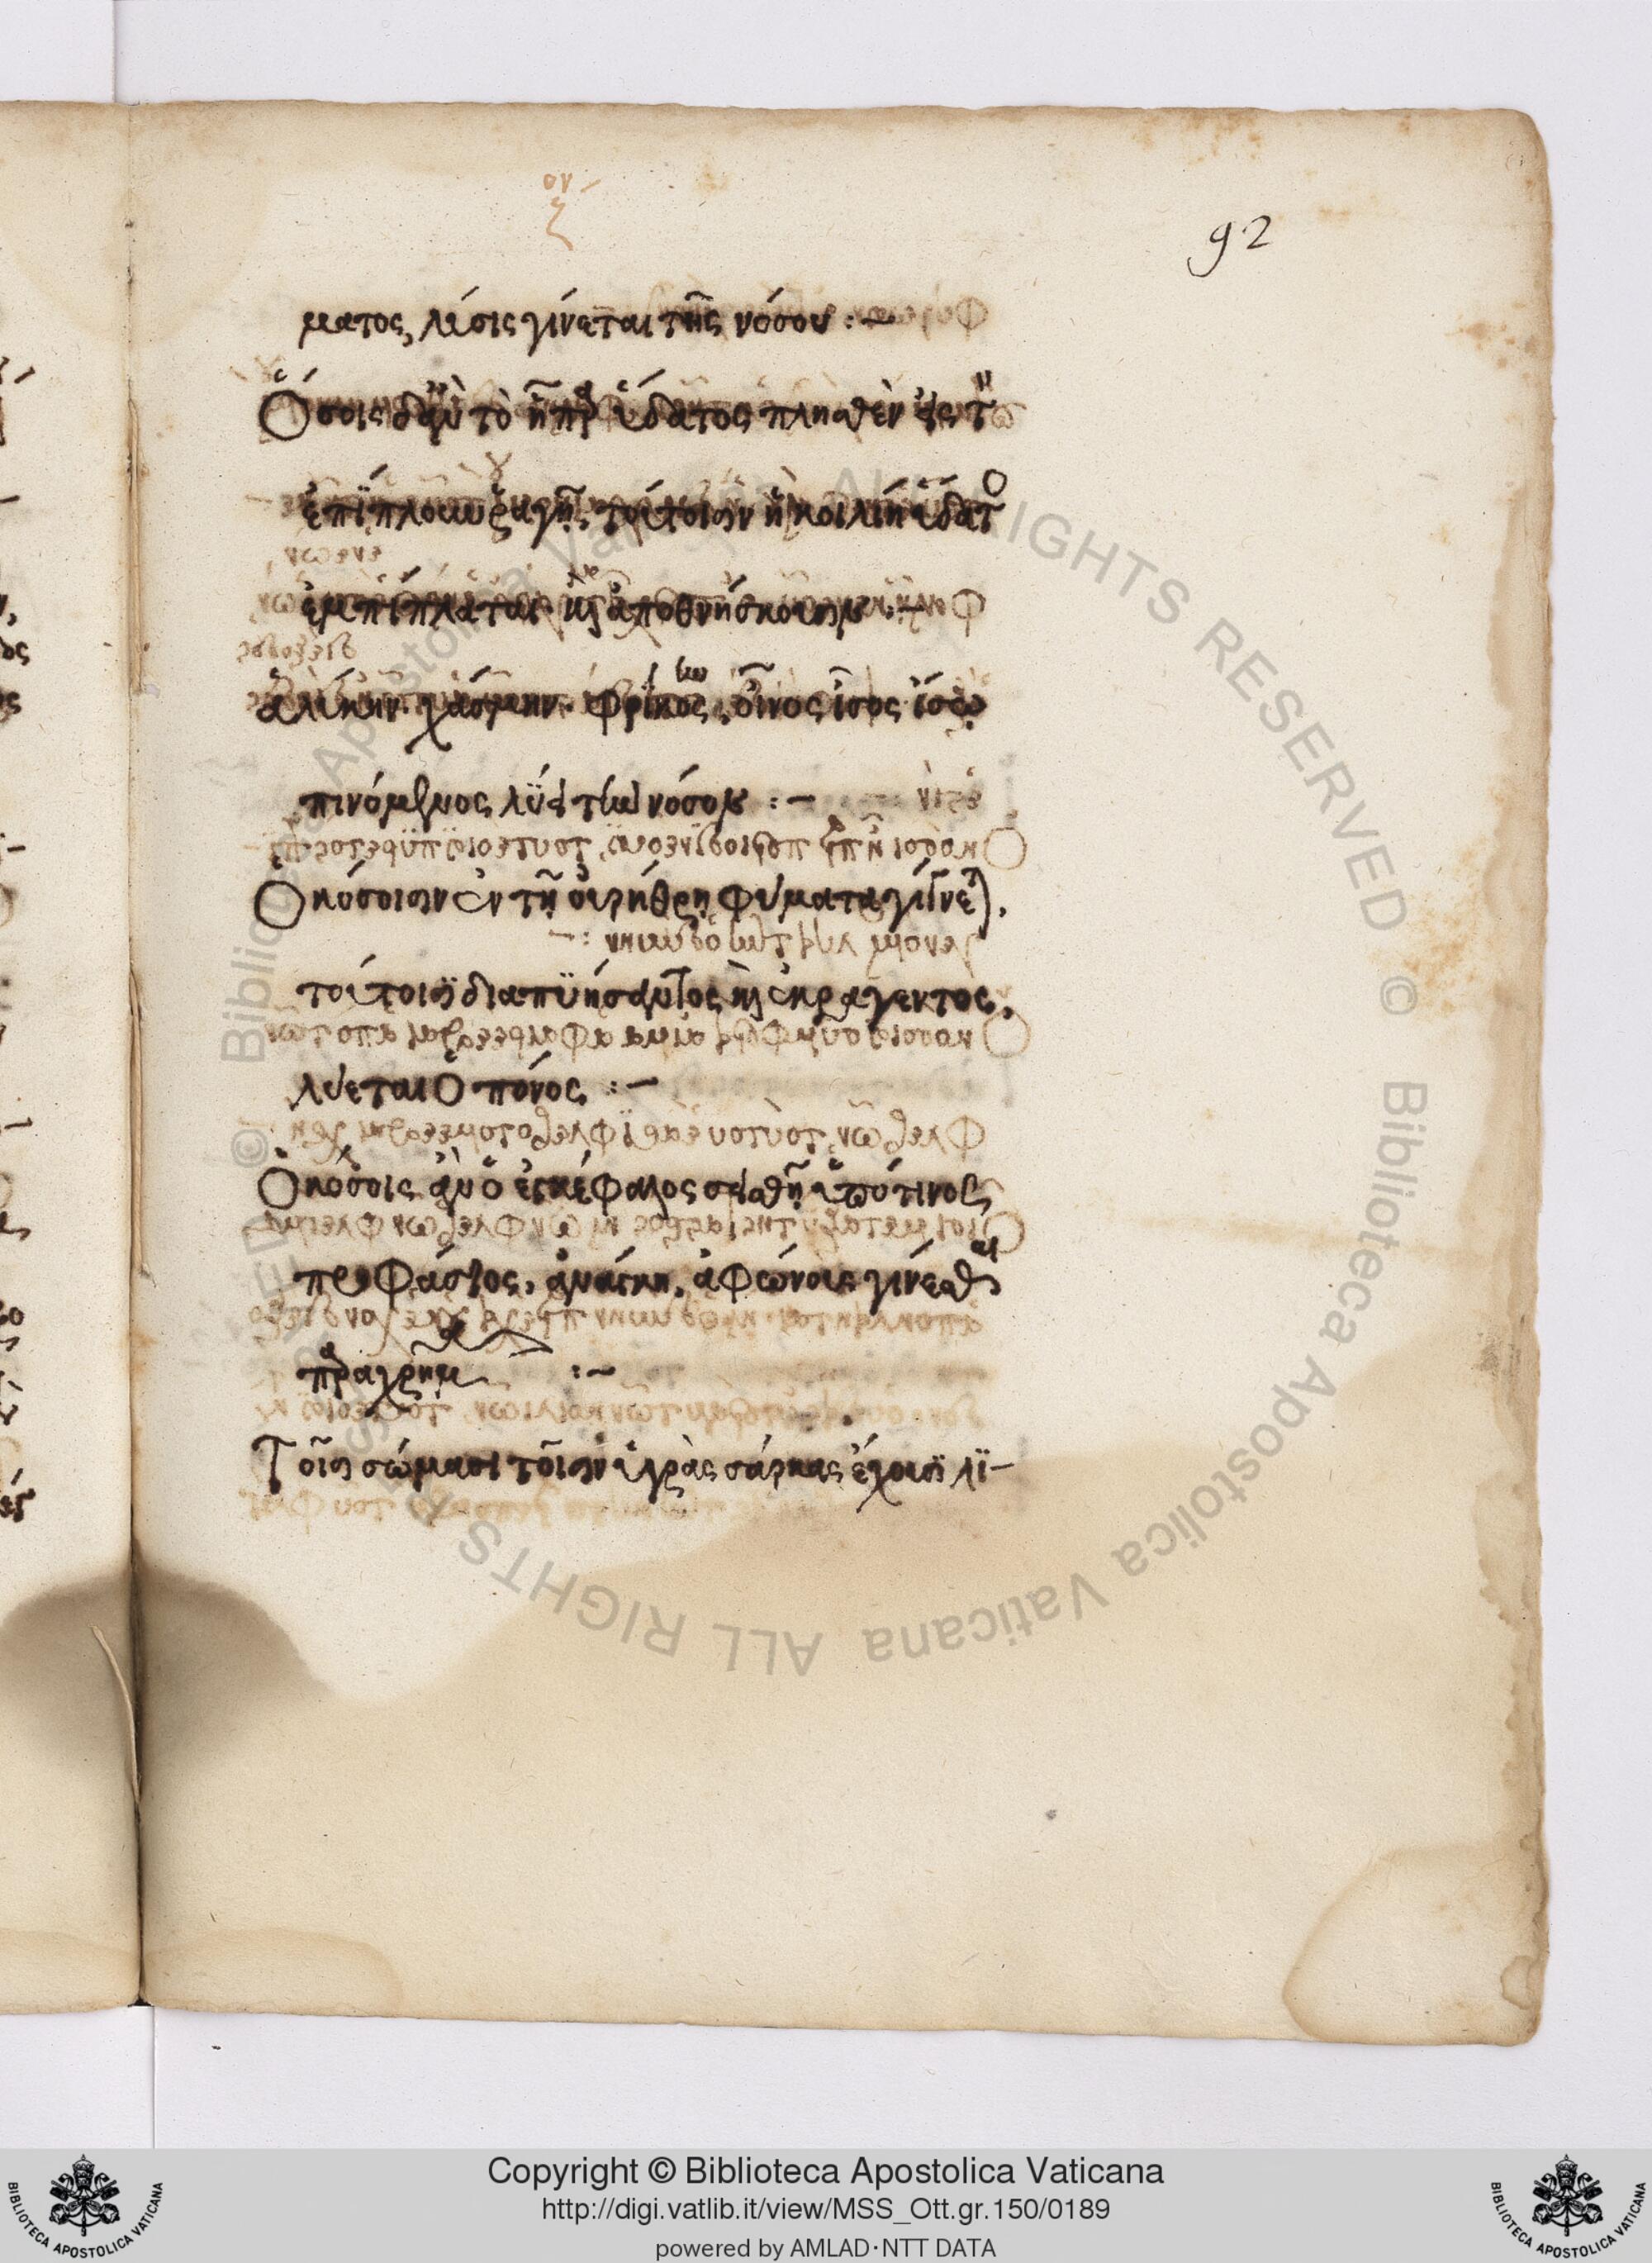 92
ματος, λύσις γίνεται τῆς νόσου :-
Ὅσοις δ' ἂν τὸ ἧπαρ ὕδατος πλησθὲν ἐς τὸ
ἐπίπλουν ῥαγῇ, τουτέοισιν ἡ κοιλίη ὕδατος
ἐμπίπλαται καὶ ἀποθνήσκουσιν :-
ἀλύκην· χάσμην· φρίκην, οἶνος ἴσος ἴσῳ
πινόμενος λύει τὴν νόσον :-
Ὁκόσοισιν ἐν τῇ οὐρήθρῃ φύματα γίνεται,
τούτοισι διαπυήσαντος καὶ ἐκραγέντος,
λύεται ὁ πόνος :-
Ὁκόσοις ἂν ὁ ἐγκέφαλος σεισθῇ ὑπό τινος
προφάσιος, ἀνάγκη, ἀφώνους γίνεσθαι
παραχρῆμα :-
Τοῖσι σώμασι τοῖσιν ὑγρὰς σάρκας ἔχουσι λι-
Copyright © Biblioteca Apostolica Vaticana
http://digi.vatlib.it/view/MSS_Ott.gr.150/0189
powered by AMLAD·NTT DATA
BIBLIOTECA APOSTOLICA VATICANA
BIBLIOTECA APOSTOLICA VATICANA
© Biblioteca Apostolica Vaticana ALL RIGHTS RESERVED
© Biblioteca Apostolica Vaticana ALL RIGHTS RESERVED